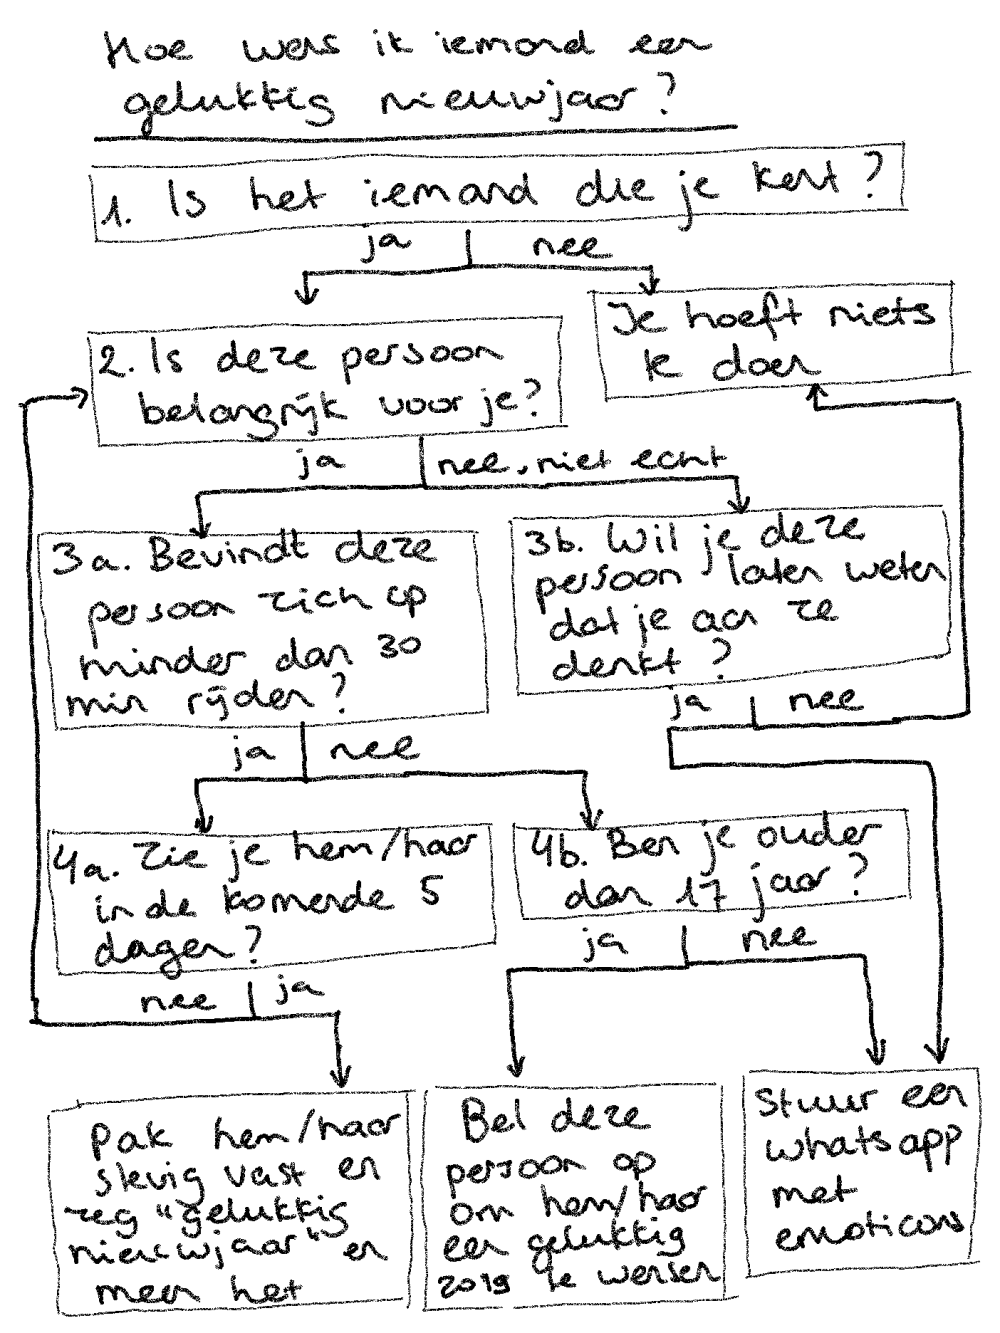 Hoe wens ik iemand een
gelukkig nieuwjaar?
1. Is het iemand die je kent?
ja nee
Je hoeft niets
te doen
2. Is deze persoon
belangrijk voor je?
ja nee, niet echt
3a. Bevindt deze
persoon zich op
minder dan 30
min rijden?
3b. Wil je deze
persoon laten weten
dat je aan ze
denkt?
ja nee
ja nee
4a. Zie je hem/haar
in de komende 5
dagen?
4b. Ben je ouder
dan 17 jaar?
ja nee
nee ja
Pak hem/haar
stevig vast en
zeg "gelukkig
nieuwjaar" en
meen het
Bel deze
persoon op
om hem/haar
een gelukkig
2019 te wensen
Stuur een
whatsapp
met
emoticons